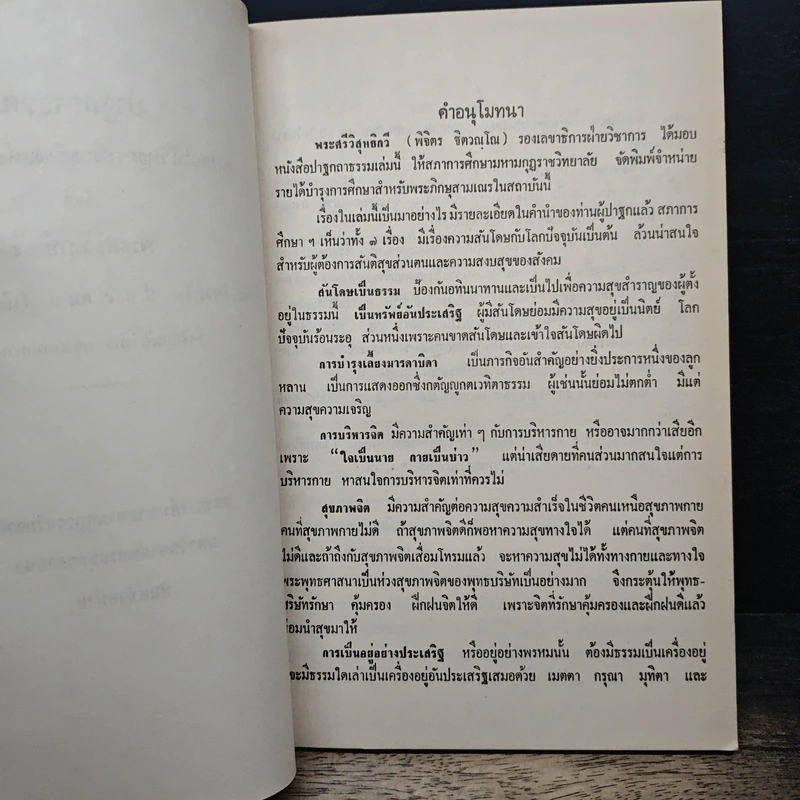 คำอนุโมทนา
พระศรีวิสุทธิกวี (พิจิตร ฐิตวณฺโณ) รองเลขาธิการฝ่ายวิชาการ ได้มอบ
หนังสือปาฐกถาธรรมเล่มนี้ ให้สภาการศึกษามหามกุฏราชวิทยาลัย จัดพิมพ์จำหน่าย
รายได้บำรุงการศึกษาสำหรับพระภิกษุสามเณรในสถาบันนี้
เรื่องในเล่มนี้เป็นมาอย่างไร มีรายละเอียดในคำนำของท่านผู้ปาฐกแล้ว สภาการ
ศึกษา ฯ เห็นว่าทั้ง ๗ เรื่อง มีเรื่องความสันโดษกับโลกปัจจุบันเป็นต้น ล้วนน่าสนใจ
สำหรับผู้ต้องการสันติสุขส่วนตนและความสงบสุขของสังคม
สันโดษเป็นธรรม ป้องกันอทินนาทานและเป็นไปเพื่อความสุขสำราญของผู้ตั้ง
อยู่ในธรรมนี้ เป็นทรัพย์อันประเสริฐ ผู้มีสันโดษย่อมมีความสุขอยู่เป็นนิตย์ โลก
ปัจจุบันร้อนระอุ ส่วนหนึ่งเพราะคนขาดสันโดษและเข้าใจสันโดษผิดไป
การบำรุงเลี้ยงมารดาบิดา เป็นภารกิจอันสำคัญอย่างยิ่งประการหนึ่งของลูก
หลาน เป็นการแสดงออกซึ่งกตัญญูกตเวทิตาธรรม ผู้เช่นนั้นย่อมไม่ตกต่ำ มีแต่
ความสุขความเจริญ
การบริหารจิต มีความสำคัญเท่า ๆ กับการบริหารกาย หรืออาจมากกว่าเสียอีก
เพราะ “ใจเป็นนาย กายเป็นบ่าว” แต่น่าเสียดายที่คนส่วนมากสนใจแต่การ
บริหารกาย หาสนใจการบริหารจิตเท่าที่ควรไม่
สุขภาพจิต มีความสำคัญต่อความสุขความสำเร็จในชีวิตคนเหนือสุขภาพกาย
คนที่สุขภาพกายไม่ดี ถ้าสุขภาพจิตดีก็พอหาความสุขทางใจได้ แต่คนที่สุขภาพจิต
ไม่ดีและถ้าถึงกับสุขภาพจิตเสื่อมโทรมแล้ว จะหาความสุขไม่ได้ทั้งทางกายและทางใจ
พระพุทธศาสนาเป็นห่วงสุขภาพจิตของพุทธบริษัทเป็นอย่างมาก จึงกระตุ้นให้พุทธ-
บริษัทรักษา คุ้มครอง ฝึกฝนจิตให้ดี เพราะจิตที่รักษาคุ้มครองและฝึกฝนดีแล้ว
ย่อมนำสุขมาให้
การเป็นอยู่อย่างประเสริฐ หรืออยู่อย่างพรหมนั้น ต้องมีธรรมเป็นเครื่องอยู่
จะมีธรรมใดเล่าเป็นเครื่องอยู่อันประเสริฐเสมอด้วย เมตตา กรุณา มุทิตา และ